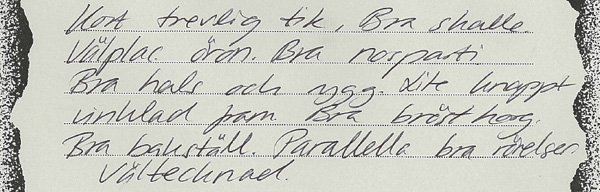 Kort trevlig tik, Bra skalle.
Välplac. öron. Bra nosparti
Bra hals och rygg. Lite knappt
vinklad fram Bra bröstkorg.
Bra bakställ. Parallella bra rörelser.
Vältecknad.